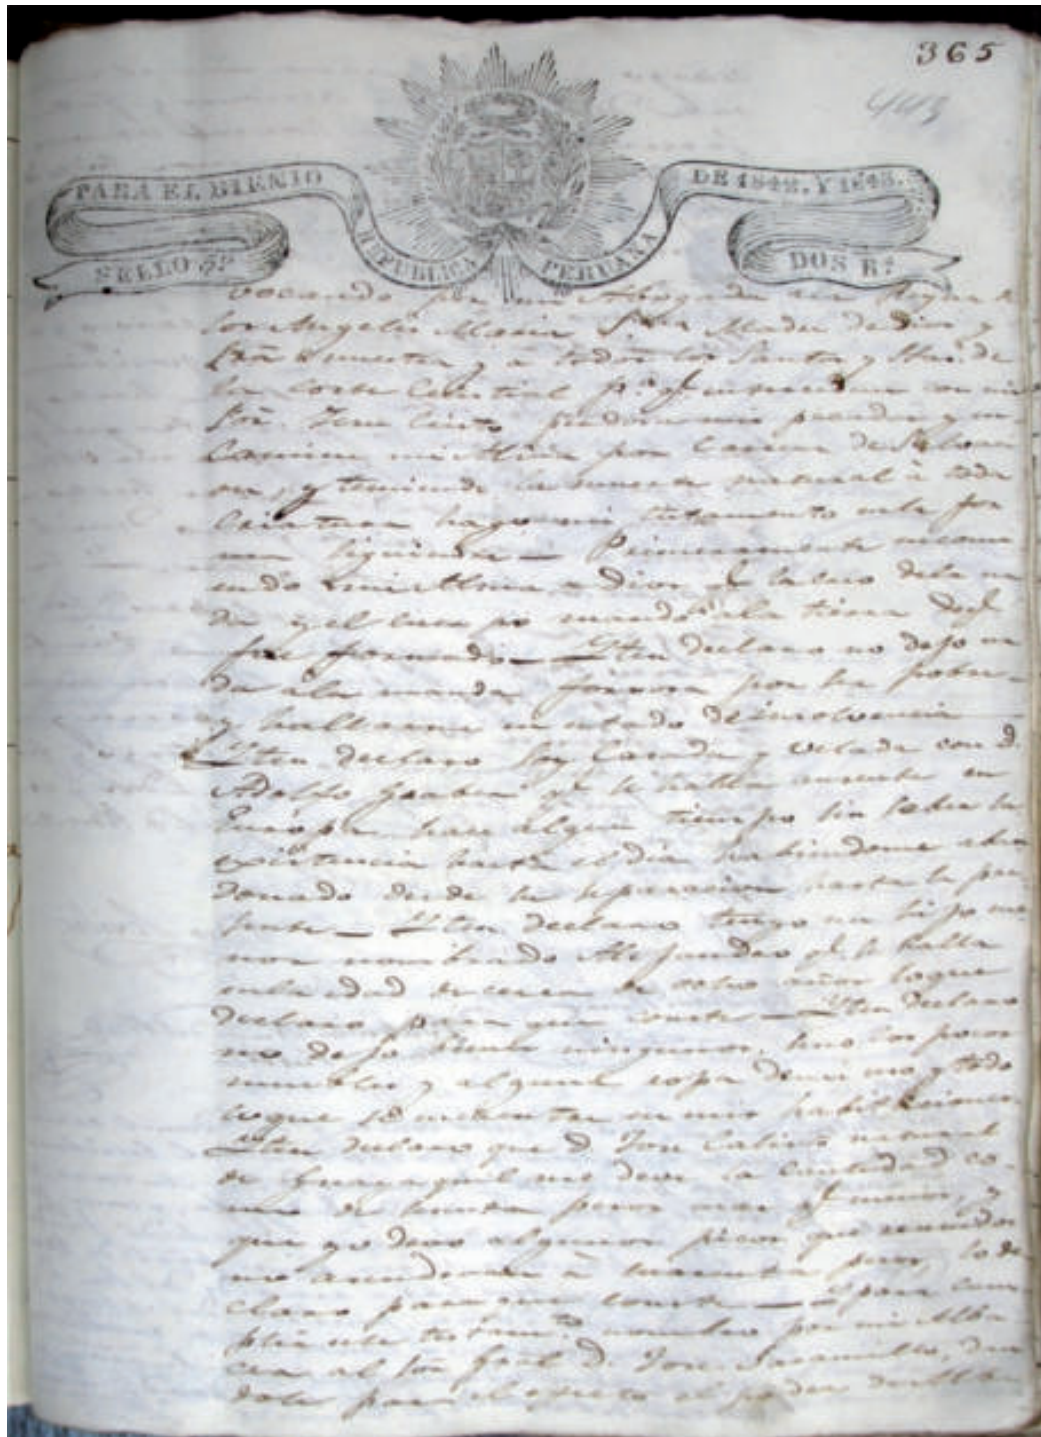 365
443
PARA EL BIENIO DE 1842. Y 1843.
SELLO 3º REPUBLICA PERUANA DOS Rˢ
vocando por mi Abogada a la Reyna de
los Angeles Maria Sma Madre de Dios y
Sra nuestra y a todos los Santos y de
la corte Celestial pª qe con mi
Sor. Jesu Cristo perdone mis pecados y en
camine mi Alma por Carrera de Salvacion
y temiendo la muerte natural à toda
Criatura hago mi testamento en la for
ma siguiente — Primeramente encomi
endo mi Alma a Dios qe la crio de la na
da y el cuerpo mando a la tierra de qe
fue formado — Yten declaro no dejo na
da a la manda forzosa por ser pobre
y hallarme en estado de insolvencia —
Yten declaro Soy Casada y velada con D.
Adolfo qe se halla ausente en
Europa hace algun tiempo sin saber su
existencia hasta el dia habiendome aban
donado desde su separacion hasta la pre
sente — Yten declaro tengo un hijo me
nor nombrado Alejandro qe se halla
en la edad de cerca de ocho años lo que
declaro para que conste — Yten declaro
no dejo bienes ningunos, sino los pocos
muebles y alguna ropa de mi uso y todo
lo que se encuentra en mis habitaciones
Yten declaro que D. Jose Calisto natural
de Guayaquil me deve la cantidad co
mo de pesos mas qe menos, y
que yo devo algunos picos que reunidos
no ascenderan à pesos, lo de
claro para que conste — Y para cum
plir este testamto nombro por mi Alba
cea al Sor Gral D. Jose Jaramillo, dan
dole para el efecto el poder de Alba